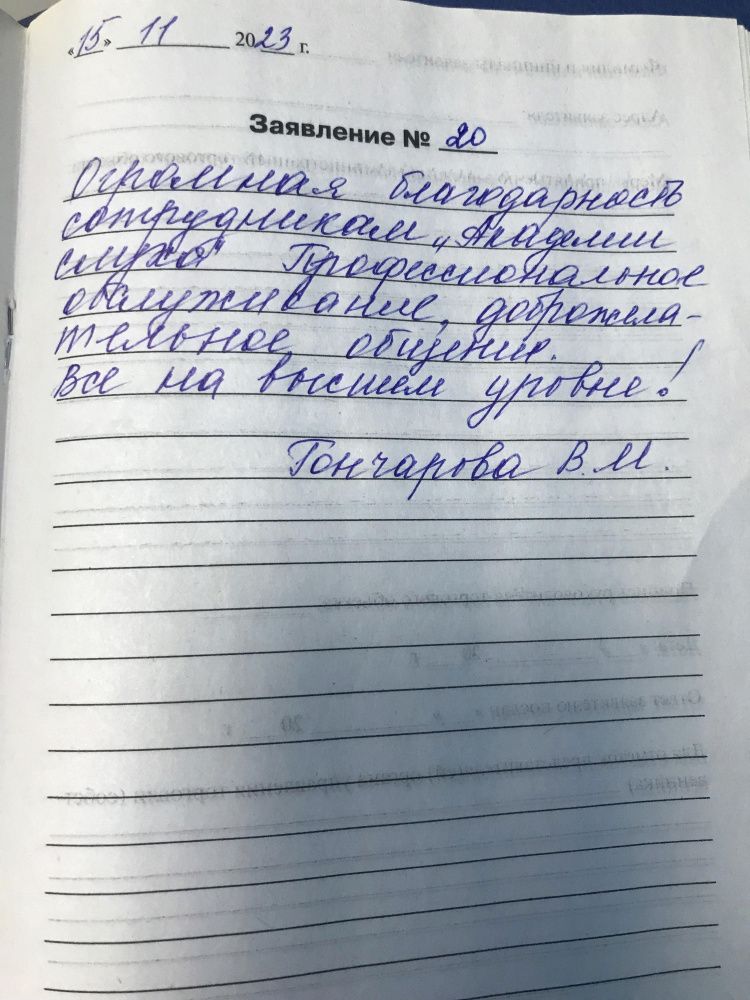 «15» 11 2023 г.
Заявление № 20
Огромная благодарность
сотрудникам „Академии
слуха" Профессиональное
обслуживание, доброжела-
тельное общение.
Все на высшем уровне!
Гончарова В.М.